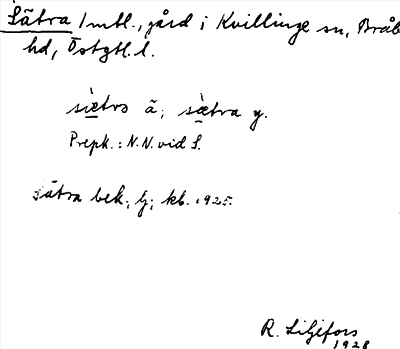 Sätra 1 mtl., gård i Kvillinge sn, Bråb
hd, Östgtl. l.
sìetro ä; sætra y.
Prepk.: N.N. vid S.
Sätra bek; Lj; kb. 1925.
R. Liljefors
1928